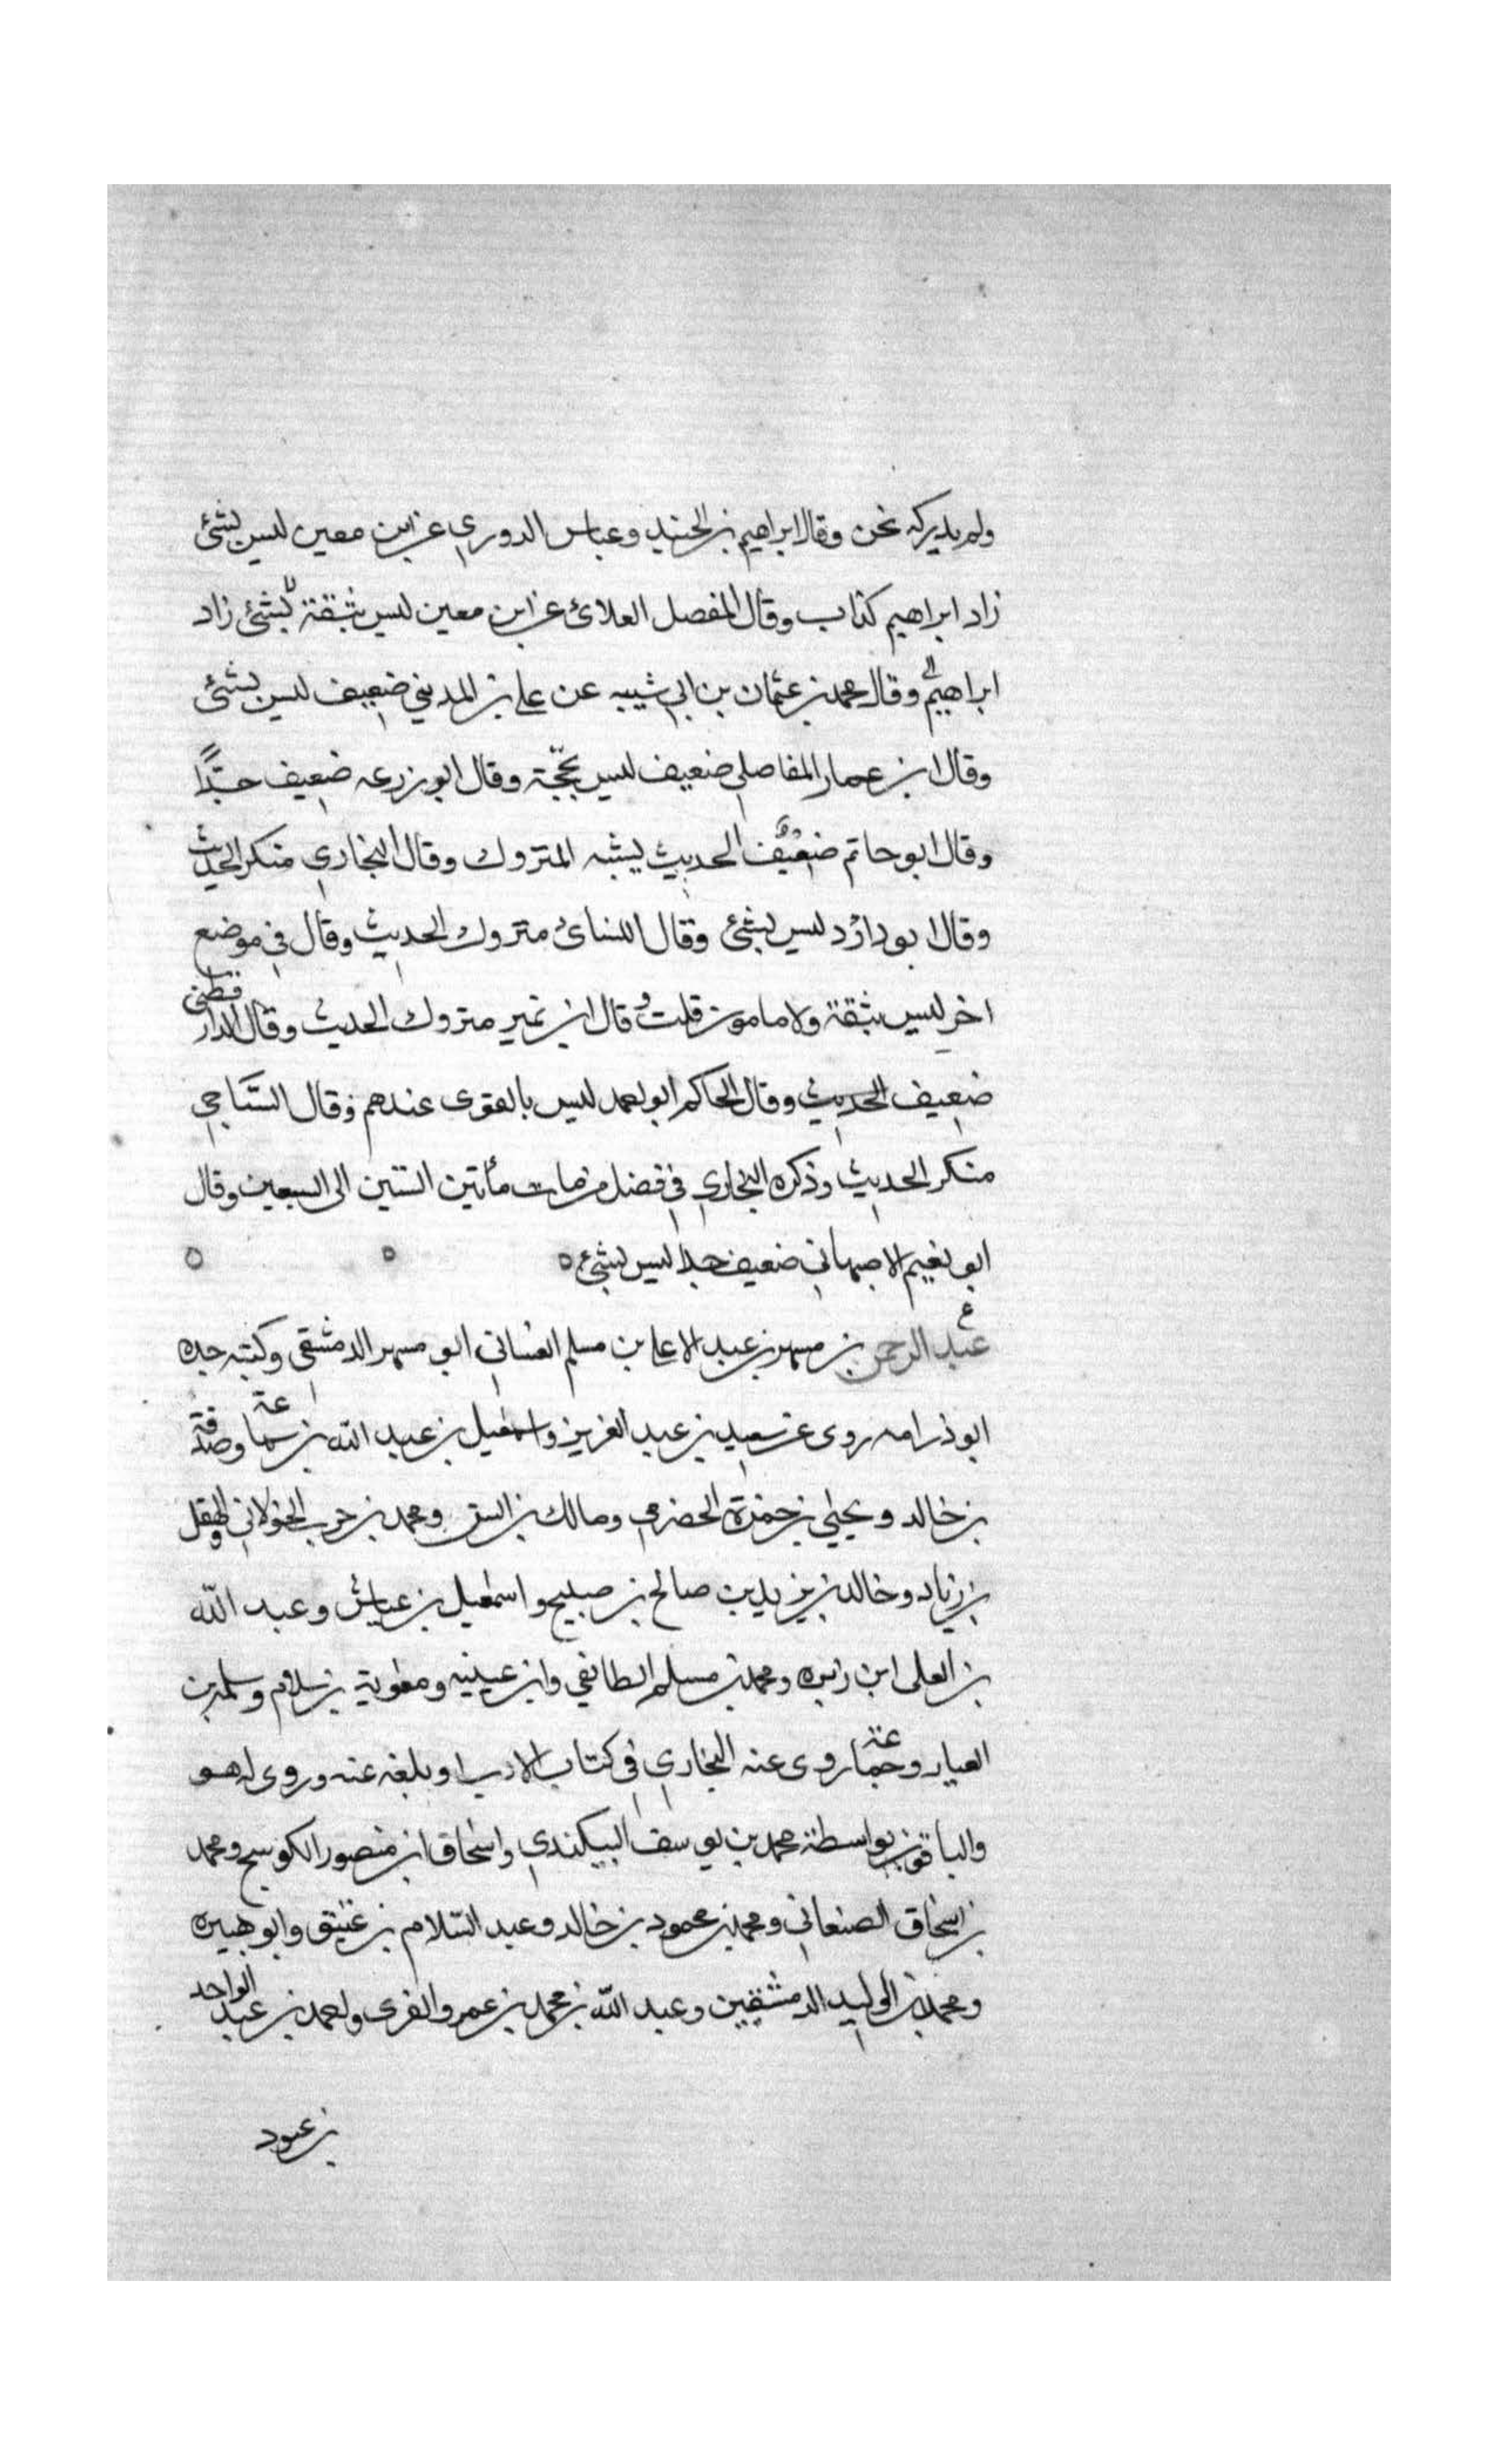 ولم يدركه نحن وقال ابراهيم بن الجنيد وعباس الدوري عن ابن معين ليس بشئ
زاد ابراهيم كذاب وقال المفضل العلائ عن ابن معين ليس بثقة بشئ زاد
ابراهيم وقال محمد بن عثمان بن ابي شيبه عن علي بن المديني ضعيف ليس بشئ
وقال ابن عمار المفاصلي ضعيف ليس بحجة وقال ابو زرعه ضعيف جدًا
وقال ابو حاتم ضعيف الحديث يشبه المتروك وقال البخاري منكر الحديث
وقال ابو داؤد ليس بشئ وقال النسائ متروك الحديث وقال في موضع
اخر ليس بثقة ولا مامون قلت وقال ابن نمير متروك الحديث وقال الدارقطني
ضعيف الحديث وقال الحاكم ابو احمد ليس بالقوى عندهم وقال السّاجي
منكر الحديث وذكره البخاري في فضل من مات مأتين الستين الى السبعين وقال
ابو نعيم الاصبهاني ضعيف جدا ليس بشئ ٥ ٥ ٥
ع
عبد الرحمن بن مسهر بن عبد الاعلى بن مسلم الغساني ابو مسهر الدمشقي وكنيته جده
ابو ذرامه روى عن سعيد بن عبد العزيز واسمعيل بن عبد الله بن سماعة وصدقة
بن خالد ويحيى بن حمزة الحضرمي ومالك بن انس ومحمد بن حرب الخولاني والهقل
بن زياد وخالد بن يزيد بن صالح بن صبيح واسمعيل بن عياش وعبد الله
بن العلى ابن زبره ومحمد بن مسلم الطائفي وابن عيينه ومعوية بن سلام وسلمه بن
العيار وجماعة روى عنه البخاري في كتاب الادب او بلغه عنه وروى له هو
والباقون بواسطة محمد بن يوسف البيكندي واسحاق ابن منصور الكوسج ومحمد
بن اسحاق الصنعاني ومحمد بن محمود بن خالد وعبد السّلام بن عتيق وابو هبيره
ومحمد بن الوليد الدمشقيين وعبد الله بن محمد بن عمرو الغزى واحمد بن عبد الواحد
بن عبود